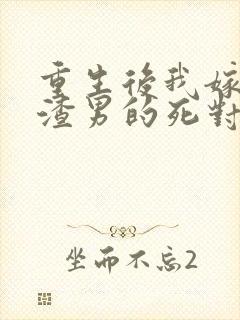 重生後我嫁
渣男的死對
坐而不忘2